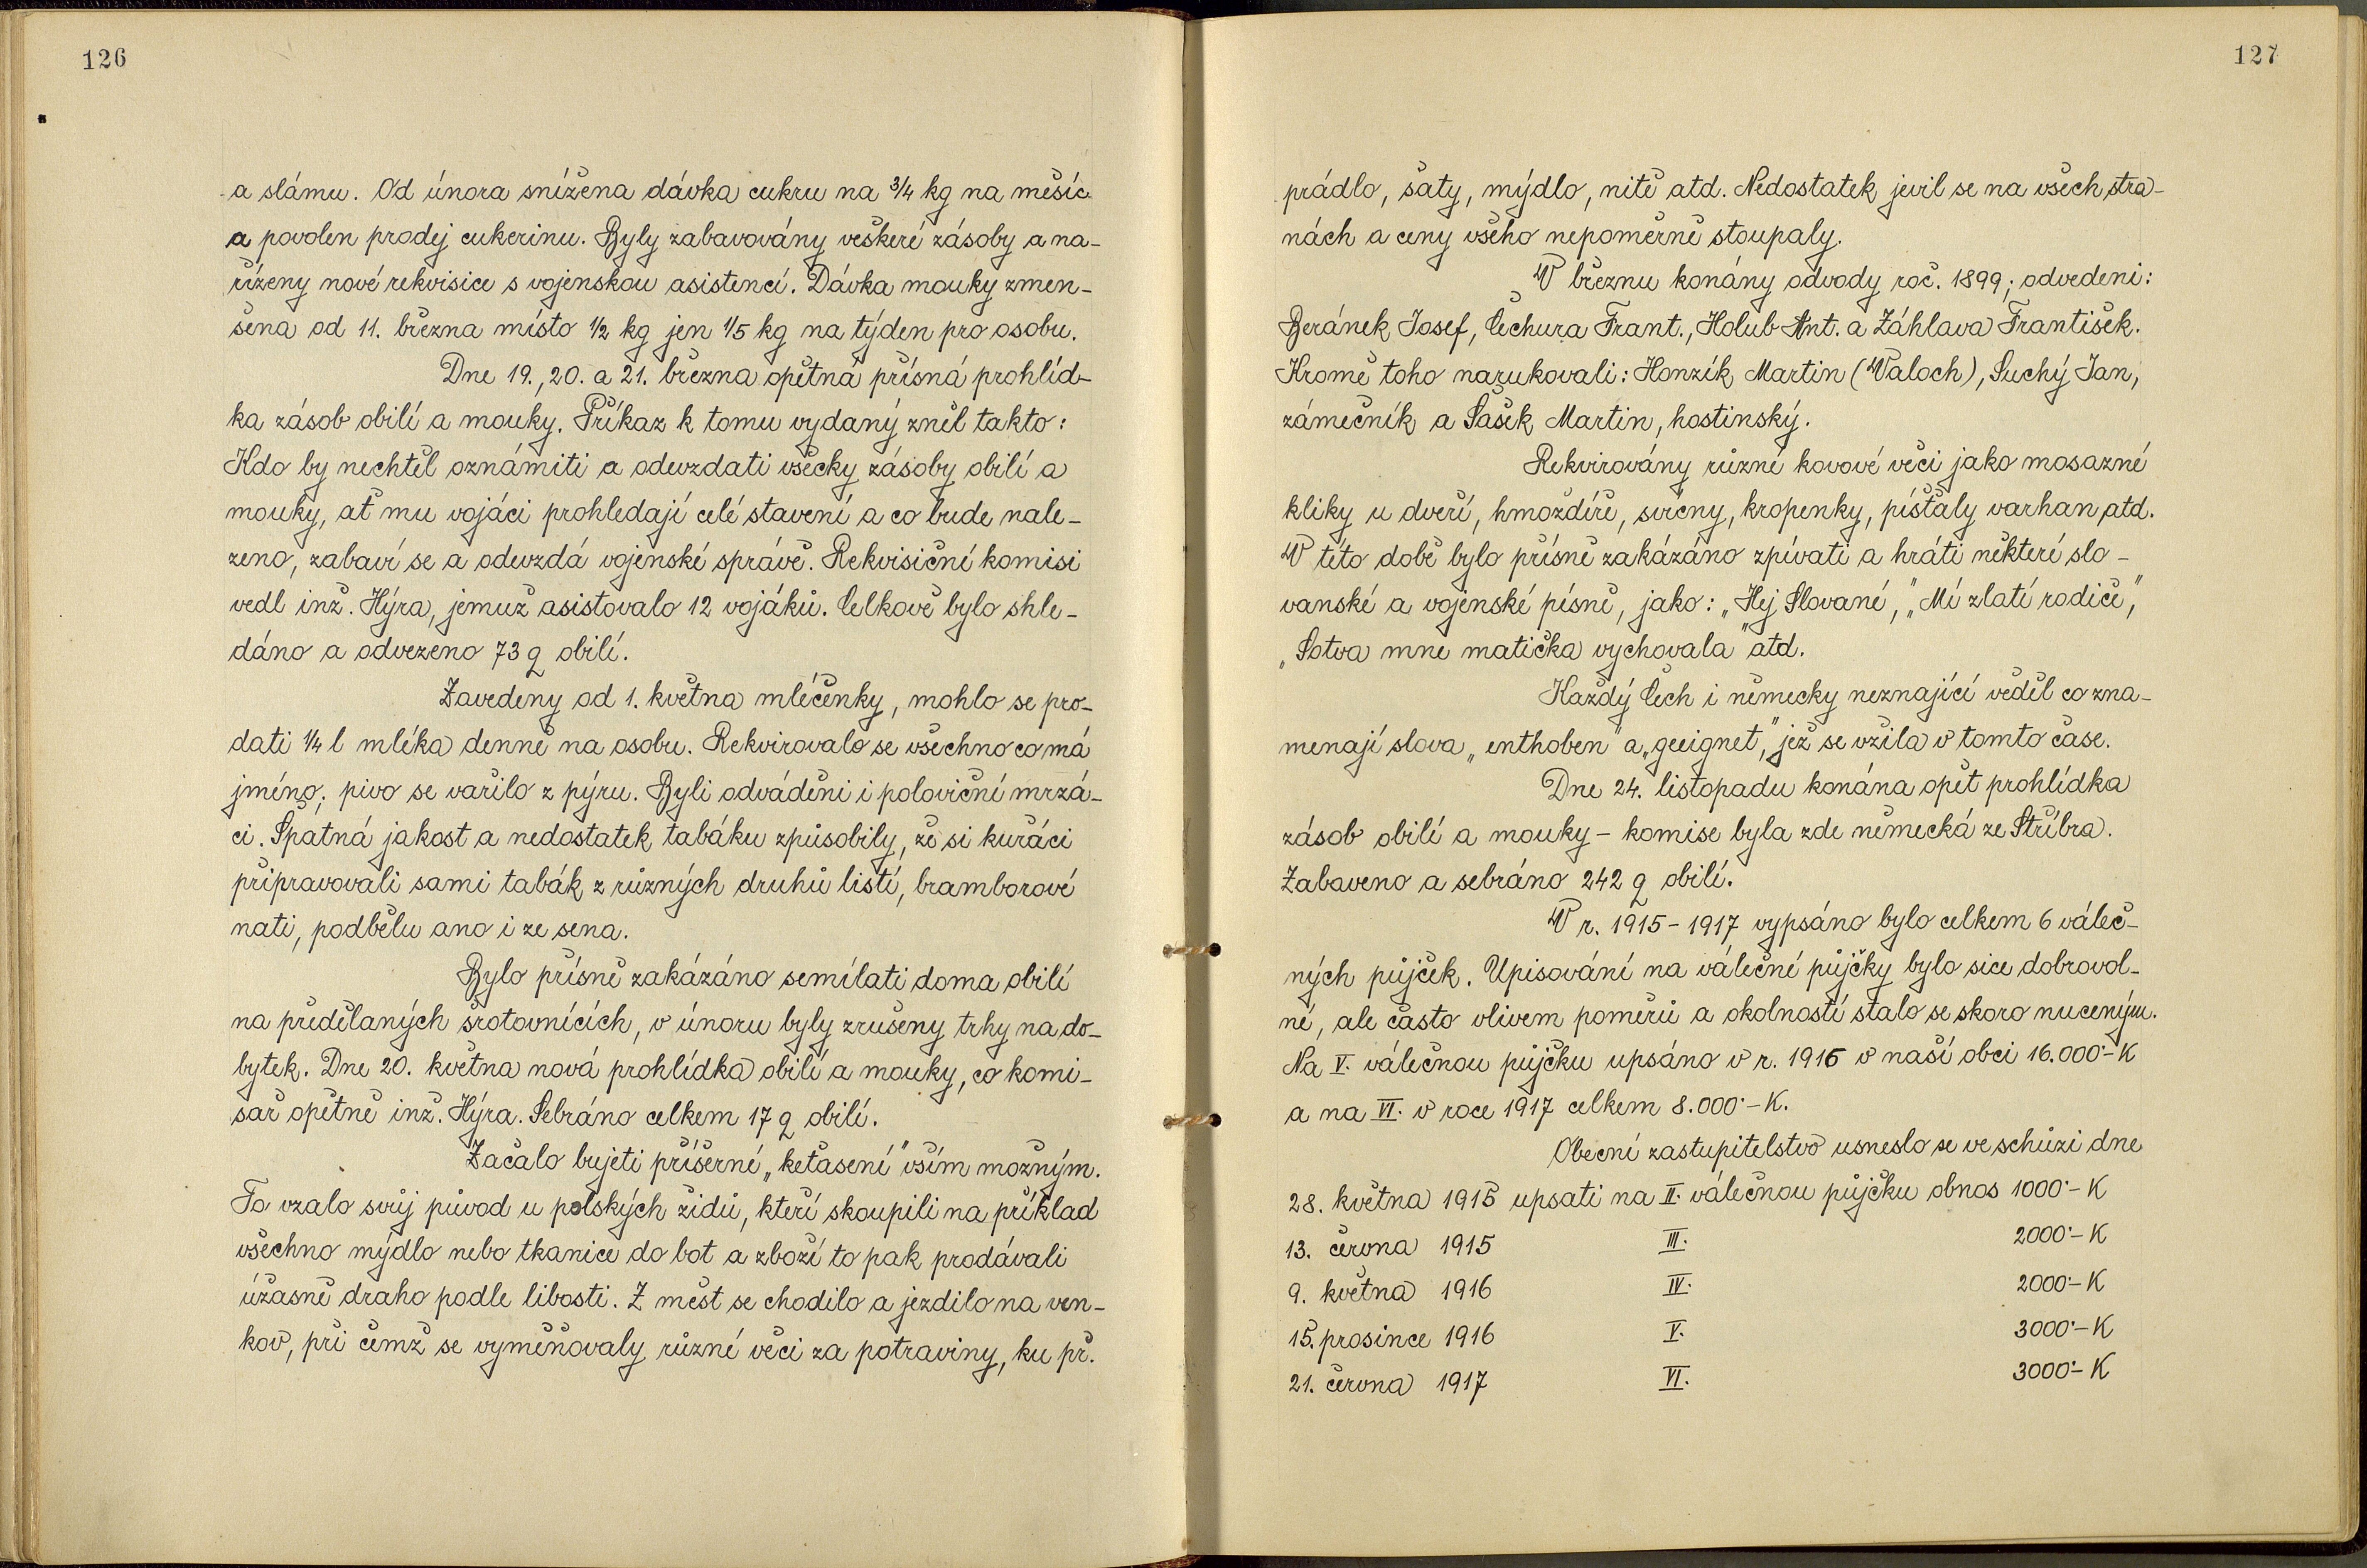 126
a slámu. Od února snížena dávka cukru na 3/4 kg na měsíc
a povolen prodej cukerinu. Byly zabavovány veškeré zásoby a na-
řízeny nové rekvisice s vojenskou asistencí. Dávka mouky zmen-
šena od 11. března místo 1/2 kg jen 1/5 kg na týden pro osobu.
Dne 19., 20. a 21. března opětná přísná prohlíd-
ka zásob obilí a mouky. Příkaz k tomu vydaný zněl takto:
Kdo by nechtěl oznámiti a odevzdati všecky zásoby obilí a
mouky, ať mu vojáci prohledají celé stavení a co bude nale-
zeno, zabaví se a odevzdá vojenské správě. Rekvisiční komisi
vedl inž. Hýra, jemuž asistovalo 12 vojáků. Celkově bylo shle-
dáno a odvezeno 73 q obilí.
Zavedeny od 1. května mléčenky, mohlo se pro-
dati 1/4 l mléka denně na osobu. Rekvirovalo se všechno co má
jméno; pivo se vařilo z pýru. Byli odváděni i poloviční mrzá-
ci. Špatná jakost a nedostatek tabáku způsobily, že si kuřáci
připravovali sami tabák z různých druhů listí, bramborové
nati, podbělu ano i ze sena.
Bylo přísně zakázáno semílati doma obilí
na předělaných šrotovnících, v únoru byly zrušeny trhy na do-
bytek. Dne 20. května nová prohlídka obilí a mouky, co komi-
sař opětně inž. Hýra. Sebráno celkem 17 q obilí.
Začalo bujeti příšerné „keťasení" vším možným.
To vzalo svůj původ u polských židů, kteří skoupili na příklad
všechno mýdlo nebo tkanice do bot a zboží to pak prodávali
úžasně draho podle libosti. Z měst se chodilo a jezdilo na ven-
kov, při čemž se vyměňovaly různé věci za potraviny, ku př.
127
prádlo, šaty, mýdlo, nitě atd. Nedostatek jevil se na všech stra-
nách a ceny všeho nepoměrně stoupaly.
V březnu konány odvody roč. 1899; odvedeni:
Beránek Josef, Čechura Frant., Holub Ant. a Záhlava František.
Kromě toho narukovali: Honzík Martin (Valoch), Suchý Jan,
zámečník a Šašek Martin, hostinský.
Rekvirovány různé kovové věci jako mosazné
kliky u dveří, hmoždíře, svícny, kropenky, píšťaly varhan atd.
V této době bylo přísně zakázáno zpívati a hráti některé slo-
vanské a vojenské písně, jako: „Hej Slované," „Mí zlatí rodiče",
„Sotva mne matička vychovala" atd.
Každý Čech i německy neznající věděl co zna-
menají slova „enthoben" a „geeignet," jež se vžila v tomto čase.
Dne 24. listopadu konána opět prohlídka
zásob obilí a mouky – komise byla zde německá ze Stříbra.
Zabaveno a sebráno 242 q obilí.
V r. 1915 – 1917 vypsáno bylo celkem 6 váleč-
ných půjček. Upisování na válečné půjčky bylo sice dobrovol-
né, ale často vlivem poměrů a okolností stalo se skoro nuceným.
Na V. válečnou půjčku upsáno v r. 1916 v naší obci 16.000·– K
a na VI. v roce 1917 celkem 8.000·– K.
Obecní zastupitelstvo usneslo se ve schůzi dne
28. května 1915 upsati na II. válečnou půjčku obnos 1000·– K
13. června 1915 III. 2000·– K
9. května 1916 IV. 2000·– K
15. prosince 1916 V. 3000·– K
21. června 1917 VI. 3000·– K